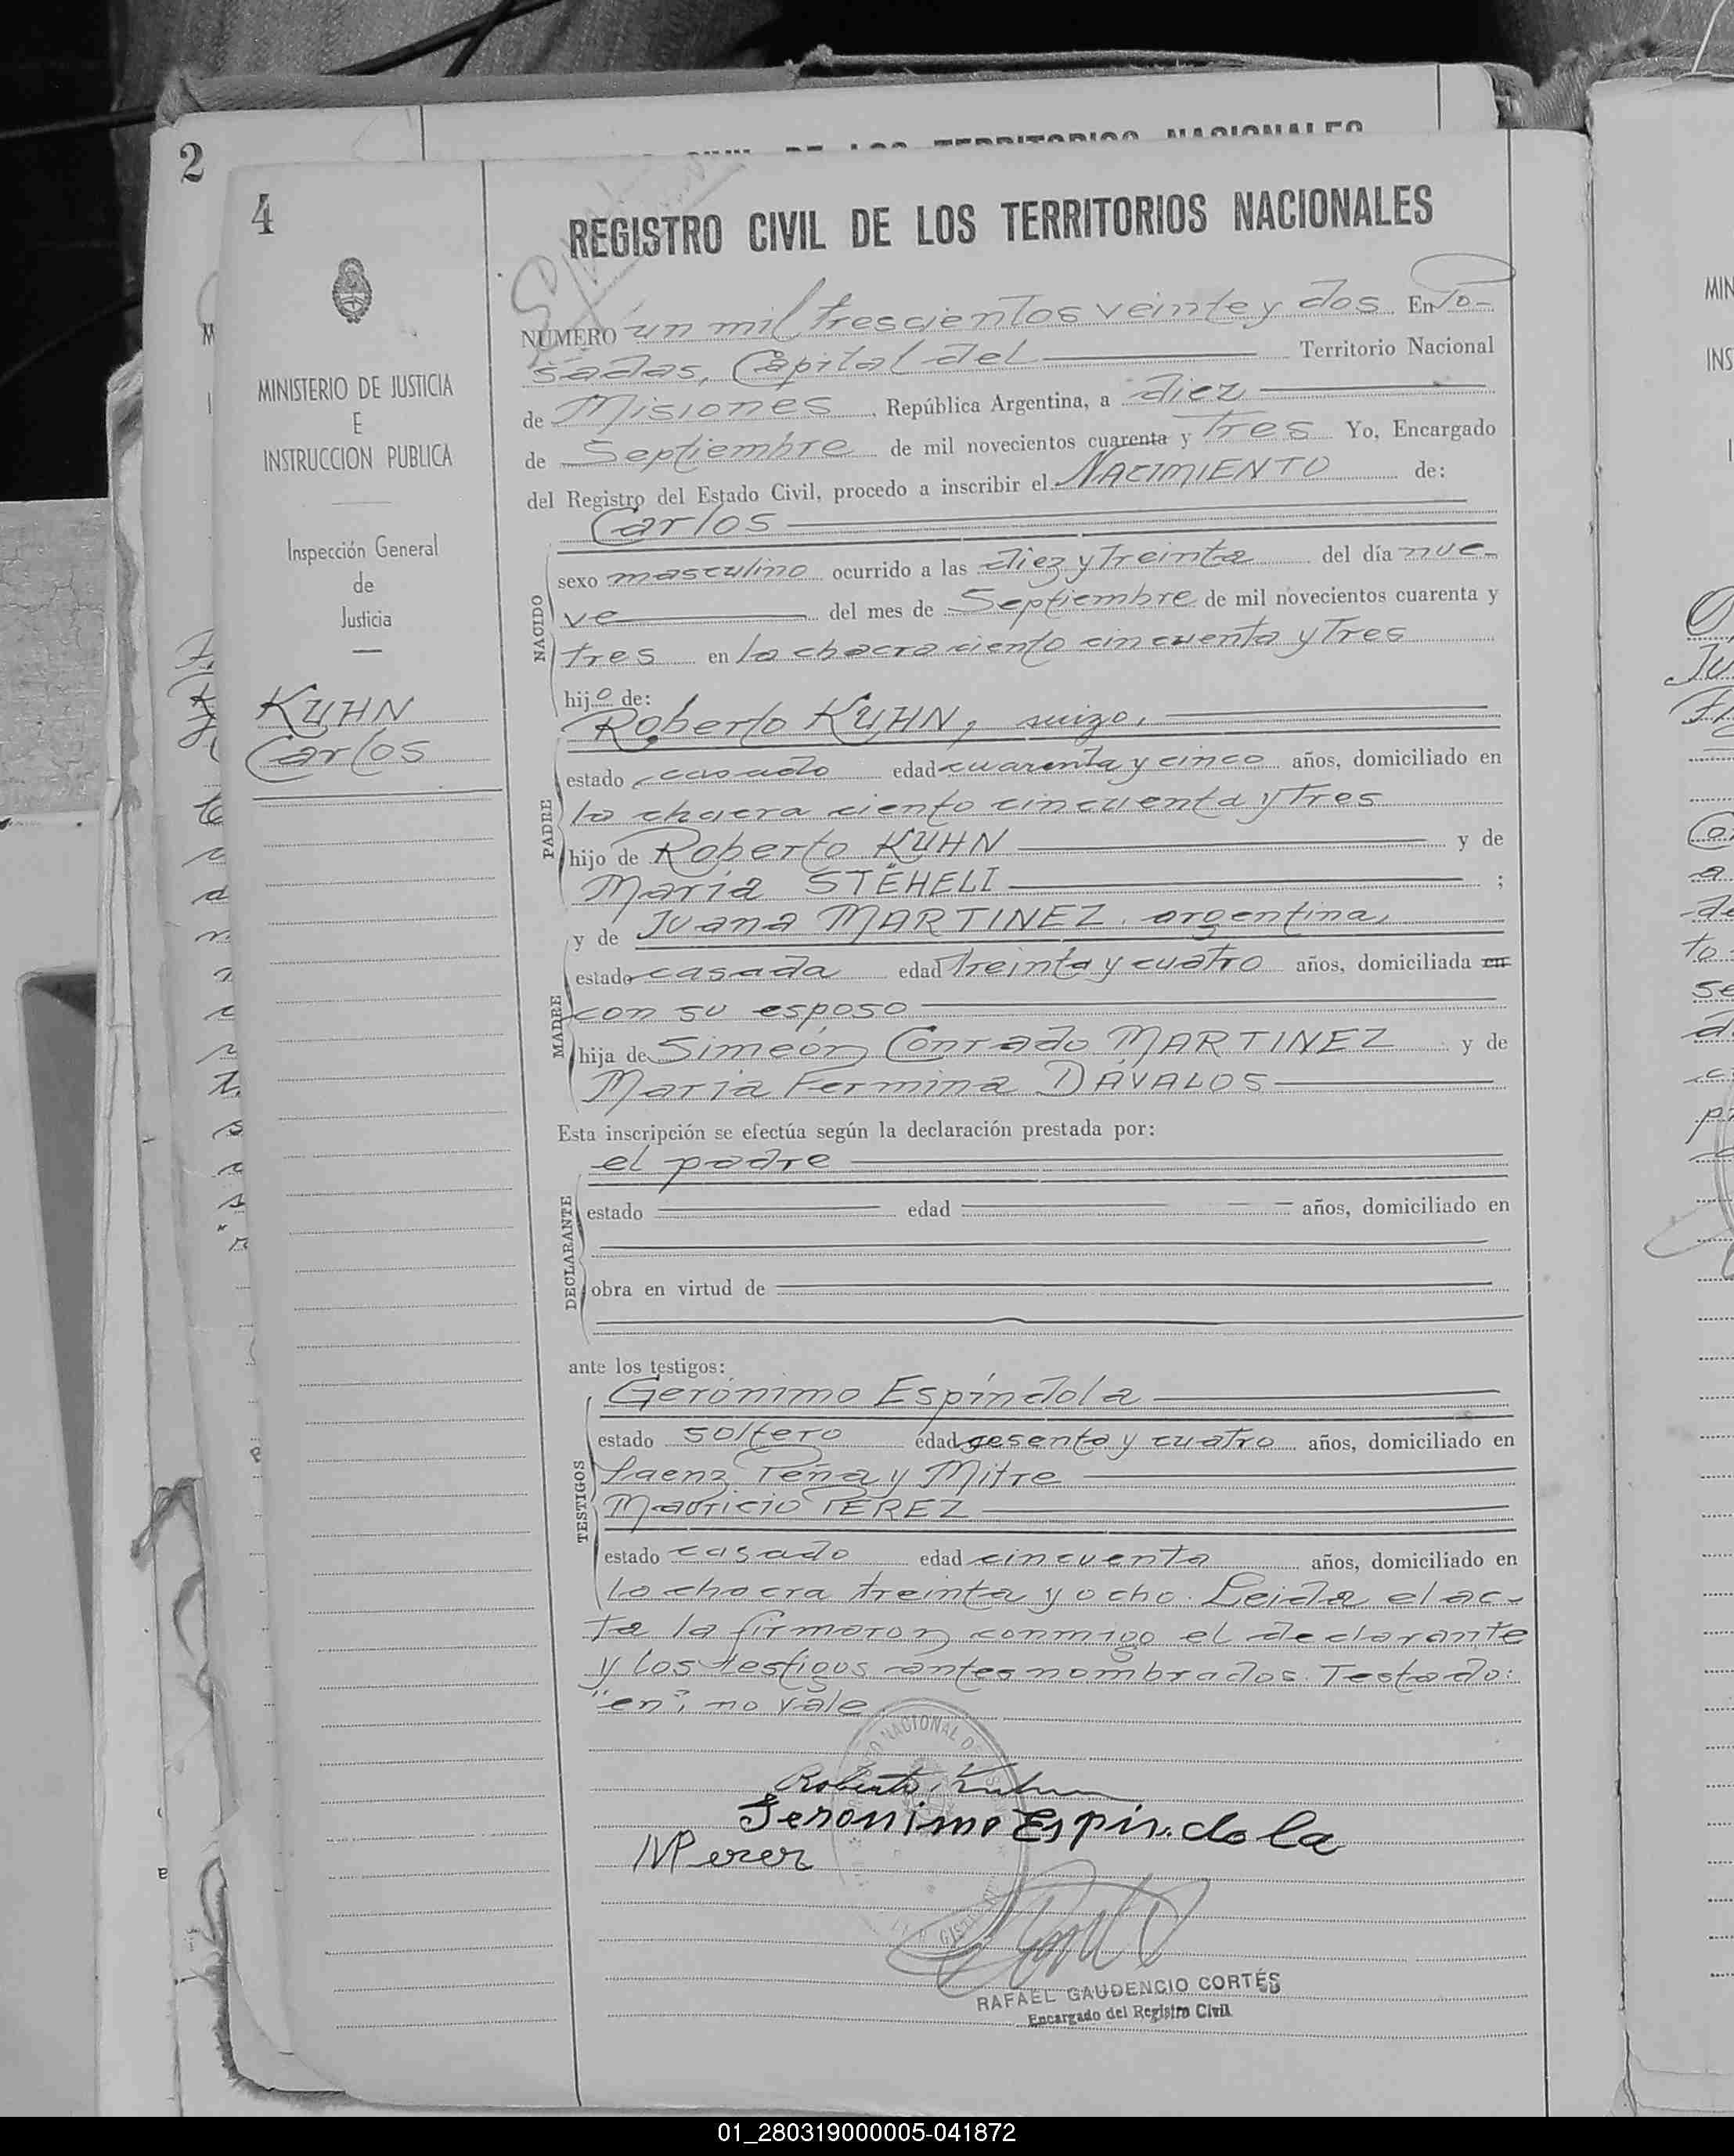 2
4
REGISTRO CIVIL DE LOS TERRITORIOS NACIONALES
MINISTERIO DE JUSTICIA
E
INSTRUCCION PUBLICA
Inspección General
de
Justicia
KUHN
Carlos
NUMERO un mil trescientos veinte y dos En Po-
sadas, Capital del Territorio Nacional
de Misiones, República Argentina, a diez
de Septiembre de mil novecientos cuarenta y tres Yo, Encargado
del Registro del Estado Civil, procedo a inscribir el NACIMIENTO de:
Carlos
NACIDO
sexo masculino ocurrido a las diez y treinta del día nue-
ve del mes de Septiembre de mil novecientos cuarenta y
tres en la chacra ciento cincuenta y tres
hijo de:
Roberto KUHN, suizo,
PADRE
estado casado edad cuarenta y cinco años, domiciliado en
la chacra ciento cincuenta y tres
hijo de Roberto KUHN y de
María STËHELI ;
y de Juana MARTINEZ, argentina,
MADRE
estado casada edad treinta y cuatro años, domiciliada en
con su esposo
hija de Simeón Conrado MARTINEZ y de
María Fermina DÁVALOS
Esta inscripción se efectúa según la declaración prestada por:
el padre
DECLARANTE
estado edad años, domiciliado en
obra en virtud de
ante los testigos:
Gerónimo Espíndola
TESTIGOS
estado soltero edad sesenta y cuatro años, domiciliado en
Saenz Peña y Mitre
Mauricio PEREZ
estado casado edad cincuenta años, domiciliado en
la chacra treinta y ocho. Leida el ac-
ta la firmaron conmigo el declarante
y los testigos antes nombrados. Testado:
"en", no vale
Roberto Kuhn
Jeronimo Espindola
MPerez
RAFAEL GAUDENCIO CORTÉS
Encargado del Registro Civil
01_280319000005-041872